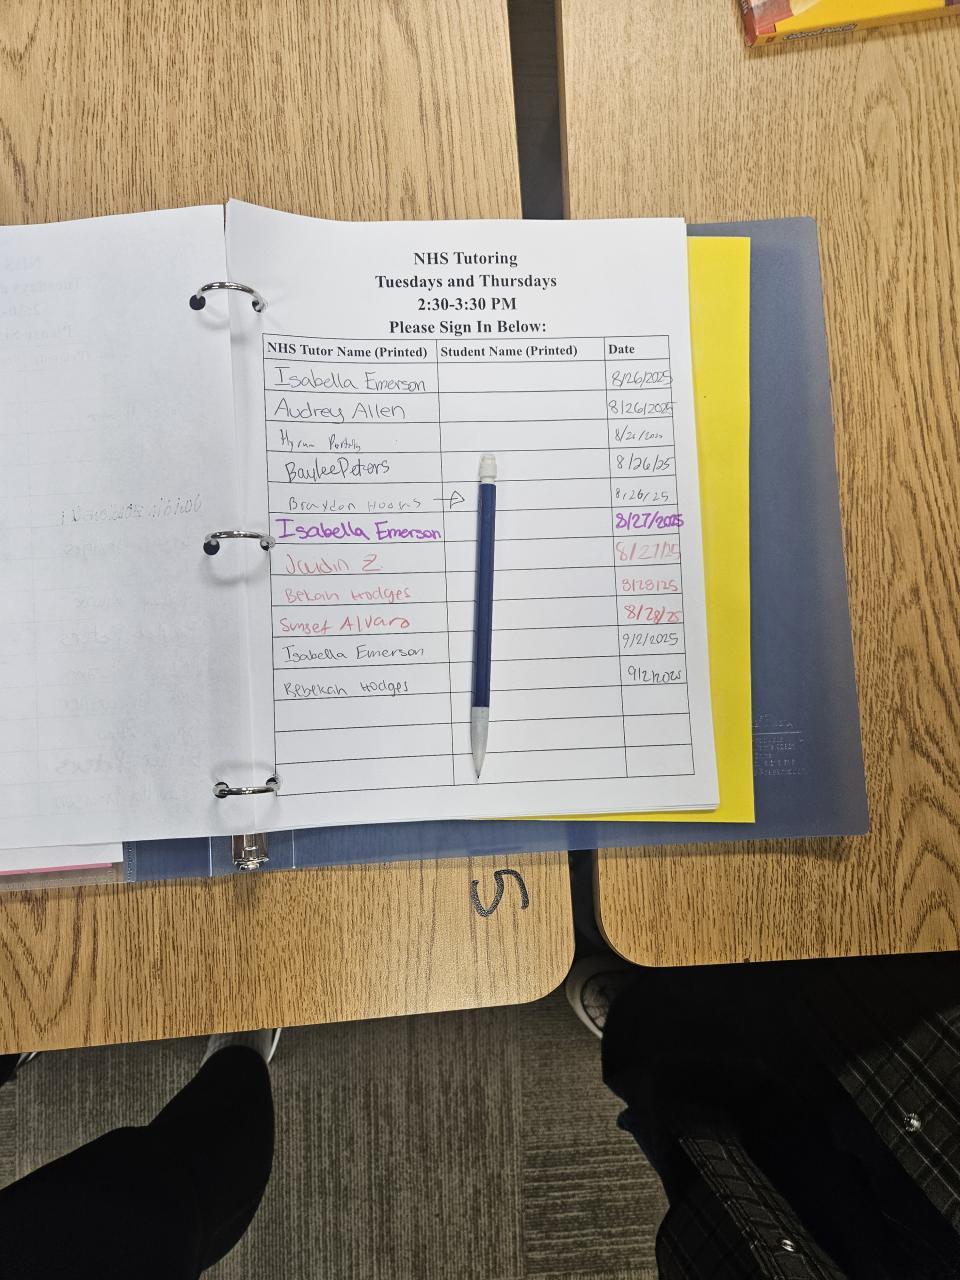 NHS Tutoring
Tuesdays and Thursdays
2:30-3:30 PM
Please Sign In Below:
NHS Tutor Name (Printed) Student Name (Printed) Date
Isabella Emerson 8/26/2025
Audrey Allen 8/26/2025
Baylee Peters 8/26/25
Braydon 8/26/25
Isabella Emerson 8/27/2025
Z. 8/27/25
Bekah Hodges 8/28/25
Sunset Alvaro 8/28/25
Isabella Emerson 9/2/2025
Rebekah Hodges 9/2/2025
5